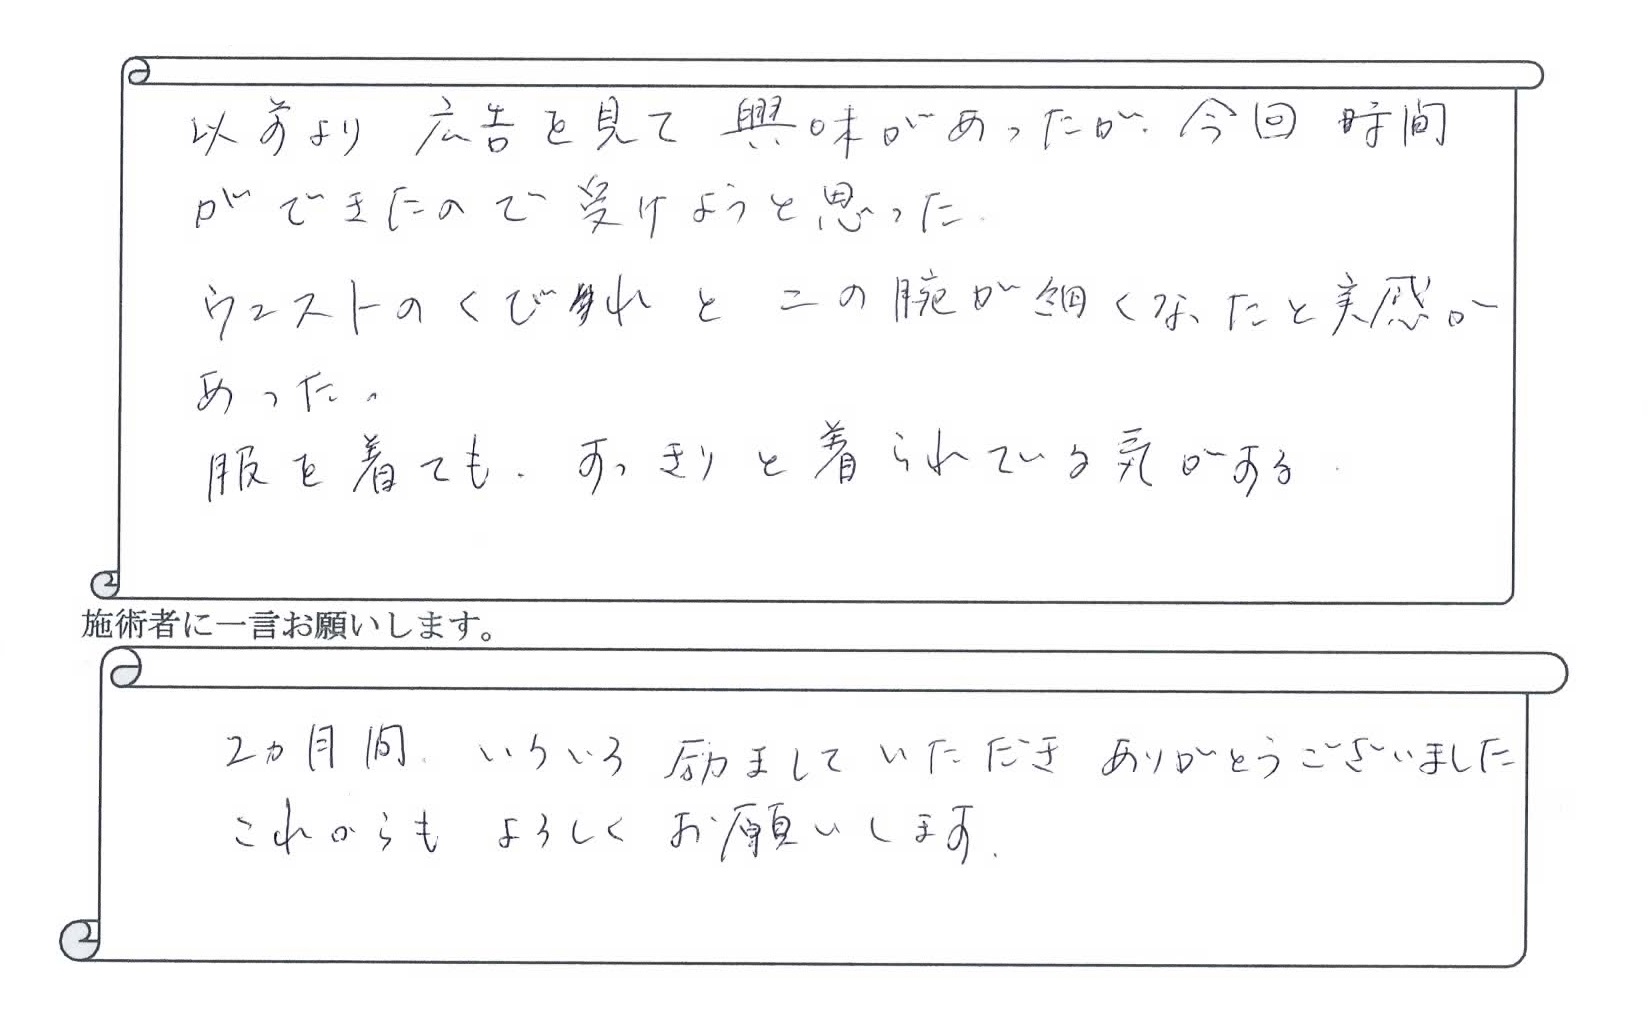 以前より 広告を見て 興味があったが、今回 時間
ができたので 受けようと思った。
ウエストのくびれと 二の腕が細くなったと実感が
あった。
服を着ても、すっきりと着られている気がする。
施術者に一言お願いします。
2カ月間、いろいろ 励ましていただき ありがとうございました
これからも よろしく お願いします。